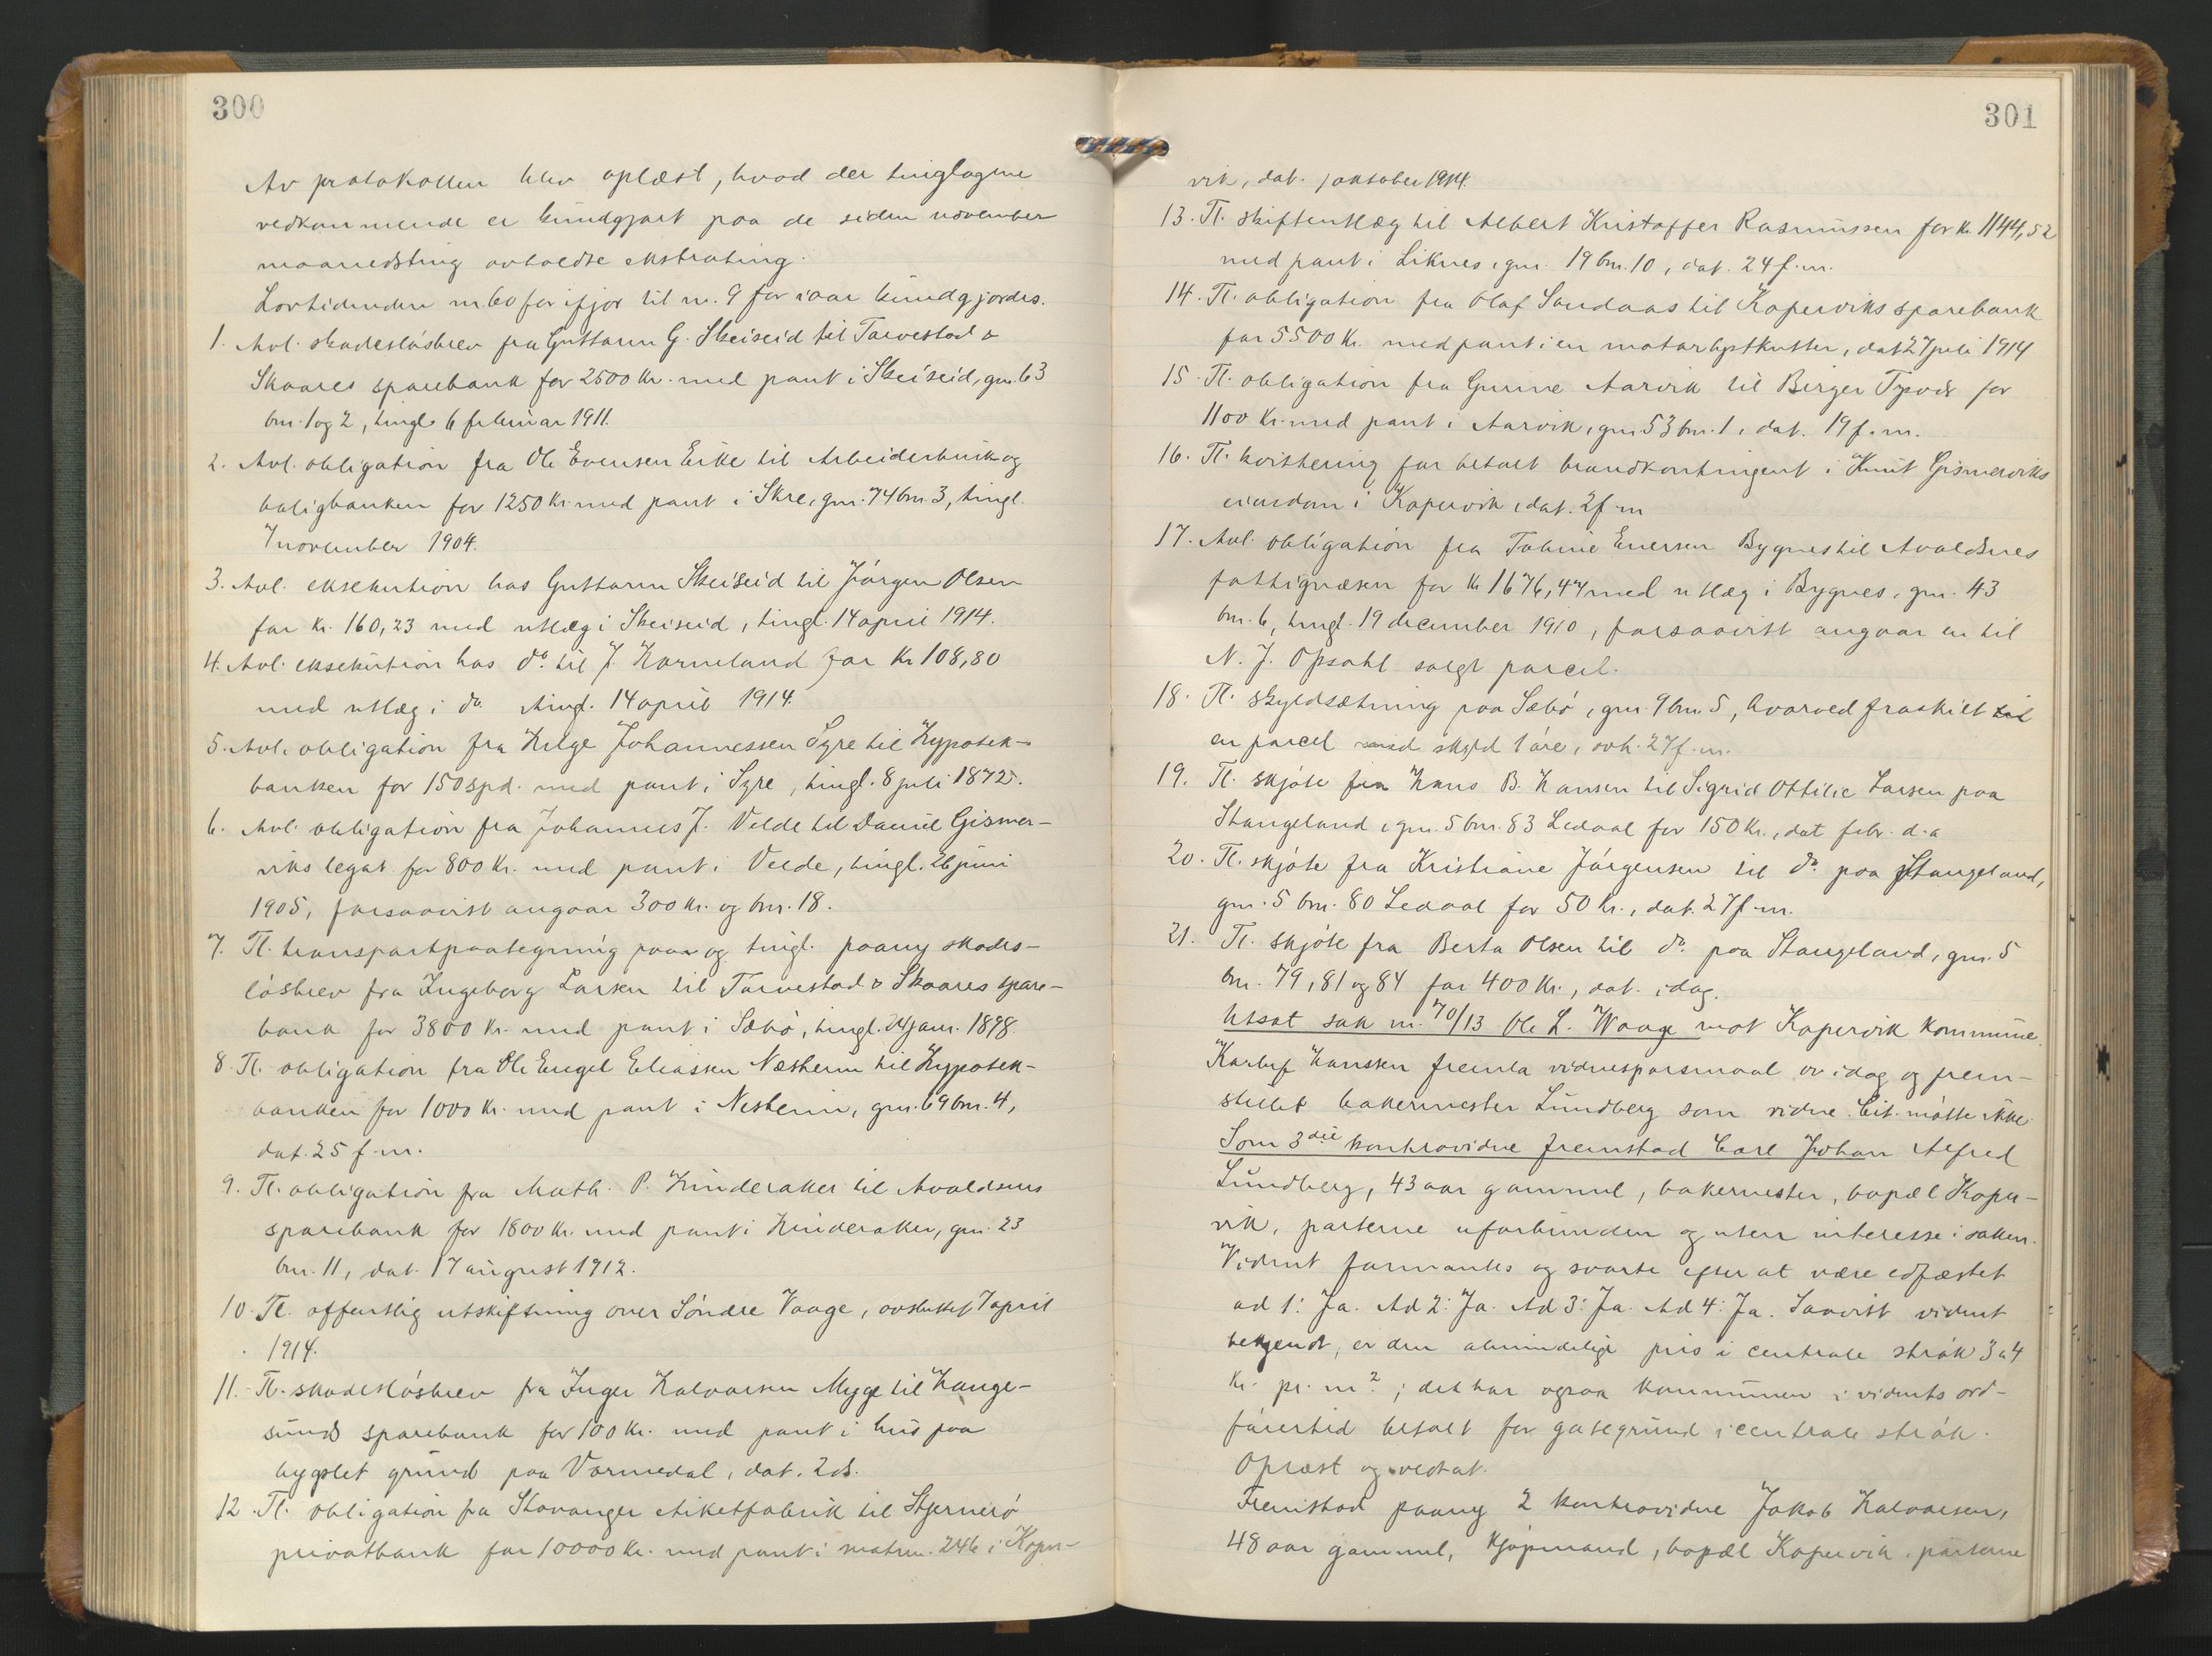 300
Av protokollen blev oplæst, hvad der tinglagene
vedkommende er kundgjort paa de siden november
maanedsting avholdte ekstrating.
Lovtidenden nr. 60 for ifjor til nr. 9 for iaar kundgjordes.
1. Avl. skadesløsbrev fra Guttorm G. Skeiseid til Torvestad &
Skaares sparebank for 2500 Kr. med pant i Skeiseid, gnr. 63
bnr. 1 og 2, tingl. 6 februar 1911.
2. Avl. obligation fra Ole Evensen Eike til Arbeiderbruk og
boligbanken for 1250 Kr. med pant i Skre, gnr. 74 bnr. 3, tingl.
7 november 1904.
3. Avl. eksekution hos Guttorm Skeiseid til Jörgen Olsen
for Kr. 160,23 med utlæg i Skeiseid, tingl. 14 april 1914.
4. Avl. eksekution hos do. til J. Horneland for Kr 108,80
med utlæg i do. tingl. 14 april 1914.
5. Avl. obligation fra Helge Johannessen Syre til Hypotek-
banken for 150 spd. med pant i Syre, tingl. 8 juli 1872.
6. Avl. obligation fra Johannes J. Velde til Daniel Gismer-
viks legat for 800 Kr. med pant i Velde, tingl. 26 juni
1905, forsaavist angaar 300 Kr. og bnr. 18.
7. Tl. transportpaategning paa og tingl. paany skades-
lösbrev fra Ingeborg Larsen til Torvestad & Skaares spare-
bank for 3800 Kr. med pant i Sæbö, tingl. 24 jan. 1898.
8. Tl. obligation fra Ole Engel Eliassen Næsheim til Hypotek-
banken for 1000 Kr. med pant i Nesheim, gnr. 69 bnr. 4,
dat. 25 f.m.
9. Tl. obligation fra Math. P. Hinderaker til Avaldsnes
sparebank for 1800 Kr. med pant i Hinderaker, gnr. 23
bnr. 11, dat. 17 august 1912.
10. Tl. offentlig utskiftning over Söndre Vaage, avsluttet 7 april
1914.
11. Tl. skadeslösbrev fra Inger Halvorsen Myge til Hauge-
sunds sparebank for 100 Kr. med pant i hus paa
bygslet grund paa Vormedal, dat. 2 ds.
12. Tl. obligation fra Stavanger etiketfabrik til Stjernerö
privatbank for 10000 Kr. med pant i matrnr. 246 i Koper-
301
vik, dat. 1 oktober 1914.
13. Tl. skifteutlæg til Albert Kristoffer Rasmussen for Kr. 1144,52
med pant i Liknes, gnr. 19 bnr. 10, dat. 24 f.m.
14. Tl. obligation fra Olaf Sandaas til Koperviks sparebank
for 5500 Kr. med pant i en motorlystkutter, dat. 27 juli 1914
15. Tl. obligation fra Gunne Aarvik til Birger for
1100 Kr. med pant i Aarvik, gnr. 53 bnr. 1, dat. 19 f.m.
16. Tl. kvittering for betalt brandkontingent i Knut Gismerviks
eiendom i Kopervik, dat. 2 f.m
17. Avl. obligation fra Tobine Enersen Bygnes til Avaldsnes
fattigvæsen for Kr 1676,44 med utlæg i Bygnes, gnr. 43
bnr. 6, tingl. 19 december 1910, forsaavitt angaar en til
N. J. Opsahl solgt parcel.
18. Tl. skyldsætning paa Sæbö, gnr. 9 bnr. 5, hvorved fraskilt til
en parcel med skyld 1 öre, avh. 27 f.m.
19. Tl. skjöte fra Hans B. Hansen til Sigrid Ottilie Larsen paa
Stangeland, gnr. 5 bnr. 83 Ledaal for 150 Kr., dat febr. d.a
20. Tl. skjöte fra Kristiane Jörgensen til do. paa Stangeland,
gnr. 5 bnr. 80 Ledaal for 50 Kr., dat. 27 f.m.
21. Tl. skjöte fra Berta Olsen til do. paa Stangeland, gnr. 5
bnr. 79, 81 og 84 for 400 Kr., dat. idag.
Utsat sak nr. 70/13 Ole L. Waage mot Kopervik kommune.
Karluf Hanssen fremla vidnespörsmaal av idag og frem-
stillet bakermester Lundberg som vidne. Cit. mötte ikke.
Som 3die kontravidne fremstod Carl Johan Alfred
Lundberg, 43 aar gammel, bakermester, bopæl Koper-
vik, parterne uforbunden og uten interesse i saken.
Vidnet formantes og svarte efter at være edfæstet
ad 1: Ja. Ad 2: Ja. Ad 3: Ja. Ad 4: Ja. Saavitt vidnet
bekjendt, er den almindelige pris i centrale strök 3 a 4
Kr. pr. m2; det har ogsaa kommunen i vidnets ord-
förertid betalt for gategrund i centrale strök.
Oplæst og vedtat.
Fremstod paany 2 kontravidne Jakob Halvorsen,
48 aar gammel, kjöpmand, bopæl Kopervik, parterne